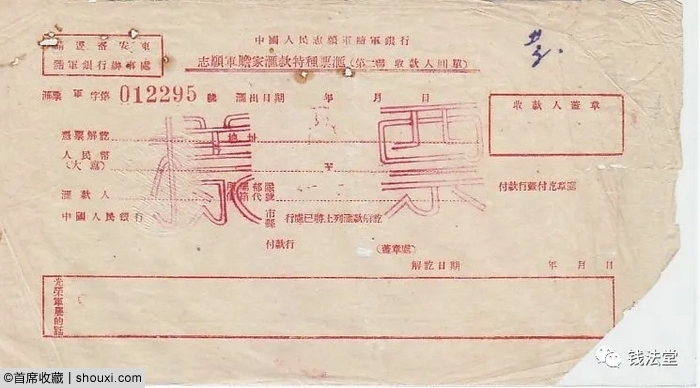 請逕寄安東
隨軍銀行辦事處
中國人民志願軍隨軍銀行
志願軍贍家滙款特種票滙(第二聯 收款人回單)
滙票 軍字第 012295 號 滙出日期 年 月 日
收款人蓋章
憑票解訖 地址
人民幣
(大寫)
至
樣票
滙款人
部隊
代號
付款行簽付訖章處
中國人民銀行
市
縣
行處已將上列滙款解訖
付款行 (蓋章處)
解訖日期 年 月 日
光榮軍屬的話
©首席收藏 | shouxi.com
钱法堂